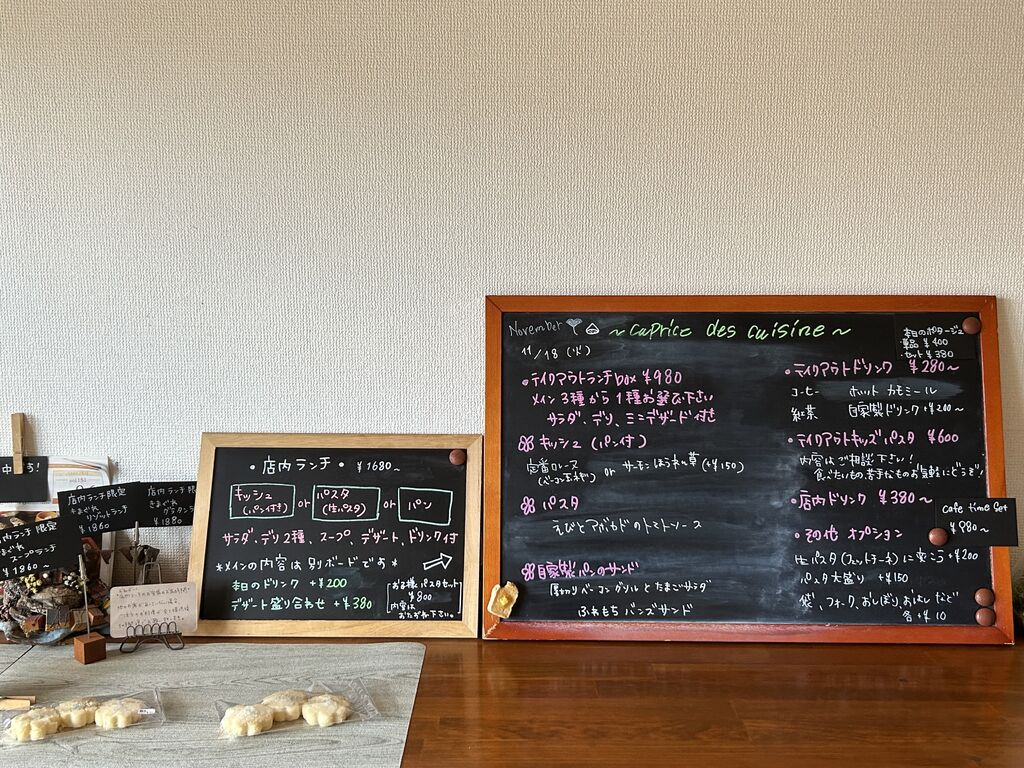 店内ランチ限定
きまぐれ
リゾットランチ
¥1860
店内ランチ限
きまぐれ
グラタン
¥1880
ランチ限定
きまぐれ
スープランチ
¥1860~
・店内ランチ・ ¥1680~
キッシュ
(パン付き)
or
パスタ
(生パスタ)
or
パン
サラダ、デリ2種、スープ、デザート、ドリンク付
*メインの内容は別ボードです*
本日のドリンク +¥200
デザート盛り合わせ +¥380
お子様パスタセット
¥800
内容は
おたずね下さい。
November
~caprice des cuisine~
11/18 (火)
・テイクアウトランチbox ¥980
メイン3種から1種お選び下さい
サラダ、デリ、ミニデザート付き
キッシュ (パン付)
定番ロレーヌ
(ベーコン玉ねぎ)
or サーモンほうれん草 (+¥150)
パスタ
えびとアボカドのトマトソース
自家製パンのサンド
厚切りベーコングリルとたまごサラダ
ふわもちバンズサンド
本日のポタージュ
・単品 ¥400
・セット ¥380
・テイクアウトドリンク ¥280~
コーヒー ホットカモミール
紅茶 自家製ドリンク+¥200~
・テイクアウトキッズパスタ ¥600
内容はご相談下さい!
食べたいもの、苦手なものお気軽にどうぞ!
・店内ドリンク ¥380~
cafe time set
¥980~
・その他 オプション
生パスタ(フェットチーネ)に変こう +¥200
パスタ大盛り +¥150
袋、フォーク、おしぼり、おはしなど
各+¥10